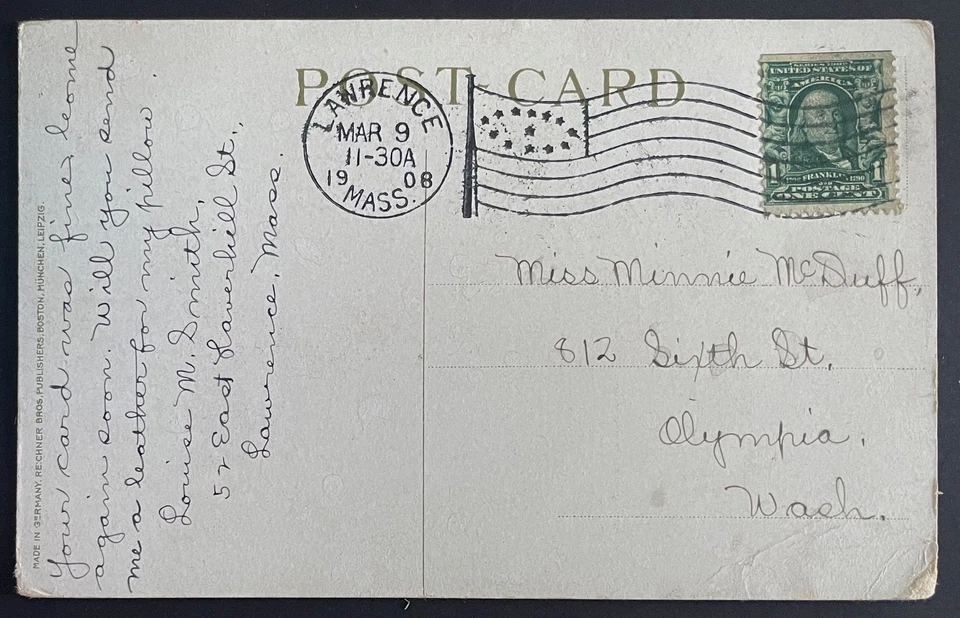 POST CARD
LAWRENCE
MAR 9
11-30A
1908
MASS.
UNITED STATES OF
AMERICA
1 FRANKLIN 1790 1
POSTAGE
ONE CENT
MADE IN GERMANY, REICHNER BROS, PUBLISHERS, BOSTON, MUNCHEN, LEIPZIG
Your card was fine, come
again soon. Will you send
me a leather for my pillow.
Louise M. Smith,
52 East Haverhill St.,
Lawrence, Mass.
Miss Minnie McDuff,
812 Sixth St.
Olympia,
Wash.